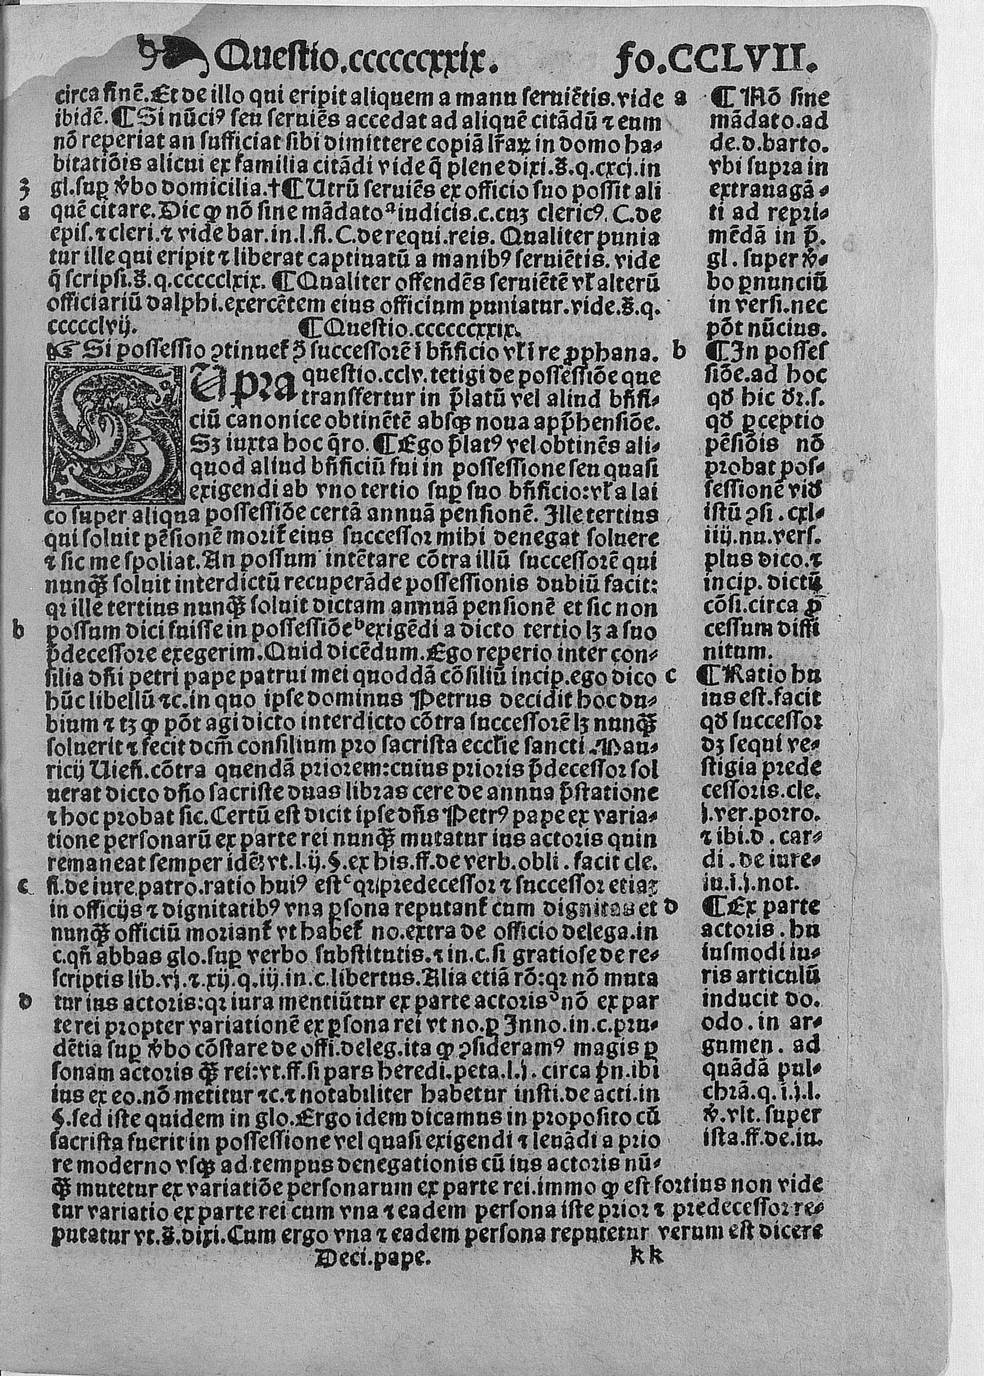 Questio.ccccccxxix. fo.CCLVII.
circa finē.Et de illo qui eripit aliquem a manu seruiētis.vide
ibidē.¶Si nūciꝰ seu seruiēs accedat ad aliquē citādū ⁊ eum
nō reperiat an sufficiat sibi dimittere copiā lr̄aꝝ in domo ha-
bitatiōis alicui ex familia citādi vide q̄ plene dixi.s̄.q.cxcj.in
gl.suꝑ v̄bo domicilia.†¶Utrū seruiēs ex officio suo possit ali
quē citare.Dic ꝙ nō sine mādatoᵃiudicis.c.cuꝫ clericꝰ. C.de
epis.⁊ cleri.⁊ vide bar.in.l.fi.C.de requi.reis. Qualiter punia
tur ille qui eripit ⁊ liberat captiuatū a manibꝰ seruiētis. vide
q̄ scripsi.s̄.q.ccccclxix. ¶Qualiter offendēs seruiētē vl̓ alterū
officiariū dalphi.exercētem eius officium puniatur.vide.s̄.q.
cccccclvij. ¶Questio.ccccccxxix.
☞ Si possessio ꝯtinuet̄ ꝫ̄ successorē ī bn̄ficio vl̓ ī re ꝓphana.
SUpra questio.cclv.tetigi de possessiōe que
transfertur in p̄latū vel aliud bn̄fi-
ciū canonice obtinētē absqꝫ noua app̄hensiōe.
Sꝫ iuxta hoc q̄ro. ¶Ego p̄latꝰ vel obtinēs ali-
quod aliud bn̄ficiū fui in possessione seu quasi
exigendi ab vno tertio suꝑ suo bn̄ficio:vl̓ a lai
co super aliqua possessiōe certā annuā pensionē. Ille tertius
qui soluit pēsionē morit̄ eius successor mihi denegat soluere
⁊ sic me spoliat.An possum intētare cōtra illū successorē qui
nunqꝫ̄ soluit interdictū recuperāde possessionis dubiū facit:
qꝛ ille tertius nunqꝫ̄ soluit dictam annuā pensionē et sic non
possum dici fuisse in possessiōeᵇexigēdi a dicto tertio lꝫ a suo
p̄decessore exegerim.Quid dicēdum.Ego reperio inter con-
silia dn̄i petri pape patrui mei quoddā cōsiliū incip.ego dico
hūc libellū ⁊c.in quo ipse dominus Petrus decidit hoc du-
bium ⁊ tꝫ ꝙ pōt agi dicto interdicto cōtra successorē lꝫ nunqꝫ̄
soluerit ⁊ fecit dcm̄ consilium pro sacrista eccl̓ie sancti Mau-
ricij Uieñ.cōtra quendā priorem:cuius prioris p̄decessor sol
uerat dicto dn̄o sacriste duas libras cere de annua p̄statione
⁊ hoc probat sic.Certū est dicit ipse dn̄s Petrꝰ pape ex varia-
tione personarū ex parte rei nunqꝫ̄ mutatur ius actoris quin
remaneat semper idē.vt.l.ij.§.ex his.ff.de verb.obli.facit cle.
fi.de iure patro.ratio huiꝰ estᶜqꝛ predecessor ⁊ successor etiaꝫ
in officijs ⁊ dignitatibꝰ vna ꝑsona reputant̄ cum dignitas et
nunqꝫ̄ officiū moriant̄ vt habet̄ no.extra de officio delega.in
c.qn̄ abbas glo.suꝑ verbo substitutis.⁊ in.c.si gratiose de re-
scriptis lib.vj.⁊.xij.q.iij.in.c.libertus.Alia etiā rō:qꝛ nō muta
tur ius actoris:qꝛ iura mentiūtur ex parte actorisᵈnō ex par
te rei propter variationē ex ꝑsona rei vt no.ꝑ Inno.in.c.pru-
dētia suꝑ v̄bo cōstare de offi.deleg.ita ꝙ ꝯsideramꝰ magis ꝑ
sonam actoris qꝫ̄ rei:vt.ff.si pars heredi.peta.l.j. circa p̄n.ibi
ius ex eo.nō metitur ⁊c.⁊ notabiliter habetur insti.de acti.in
§.sed iste quidem in glo.Ergo idem dicamus in proposito cū
sacrista fuerit in possessione vel quasi exigendi ⁊ leuādi a prio
re moderno vsqꝫ ad tempus denegationis cū ius actoris nū-
qꝫ̄ mutetur ex variatiōe personarum ex parte rei.immo ꝙ est fortius non vide
tur variatio ex parte rei cum vna ⁊ eadem persona iste prior ⁊ predecessor re-
putatur vt.s̄.dixi.Cum ergo vna ⁊ eadem persona reputetur verum est dicere
Deci.pape. kk
ʒ
a
b
c
d
a ¶Nō sine
mādato.ad
de.d.barto.
vbi supra in
extrauagā-
ti ad repri-
mēdā in p̄.
gl.super v̄-
bo ꝓnunciū
in versi.nec
pōt nūcius.
b ¶In posses
siōe.ad hoc
qđ hic dr̄.s.
qđ ꝑceptio
pēsiōis nō
probat pos-
sessionē viđ
istū ꝯsi.cxl-
iiij.nu.vers.
plus dico.⁊
incip.dictū
cōsi.circa ꝓ
cessum diffi
nitum.
c ¶Ratio hu
ius est.facit
qđ successor
dꝫ sequi ve-
stigia prede
cessoris.cle.
j.ver.porro.
⁊ ibi.d.car-
di.de iure-
iu.j.j.not.
d ¶Ex parte
actoris.hu
iusmodi iu-
ris articulū
inducit do.
odo.in ar-
gumen. ad
quādā pul-
chrā.q.j.j.l.
v̄.vlt.super
ista.ff.de.iu.